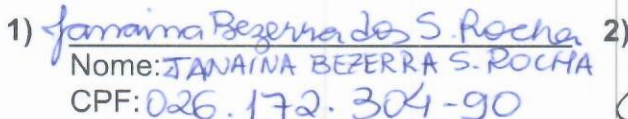 1) Janaina Bezerra dos S. Rocha 2)
Nome: JANAINA BEZERRA S. ROCHA
CPF: 026.172.304-90